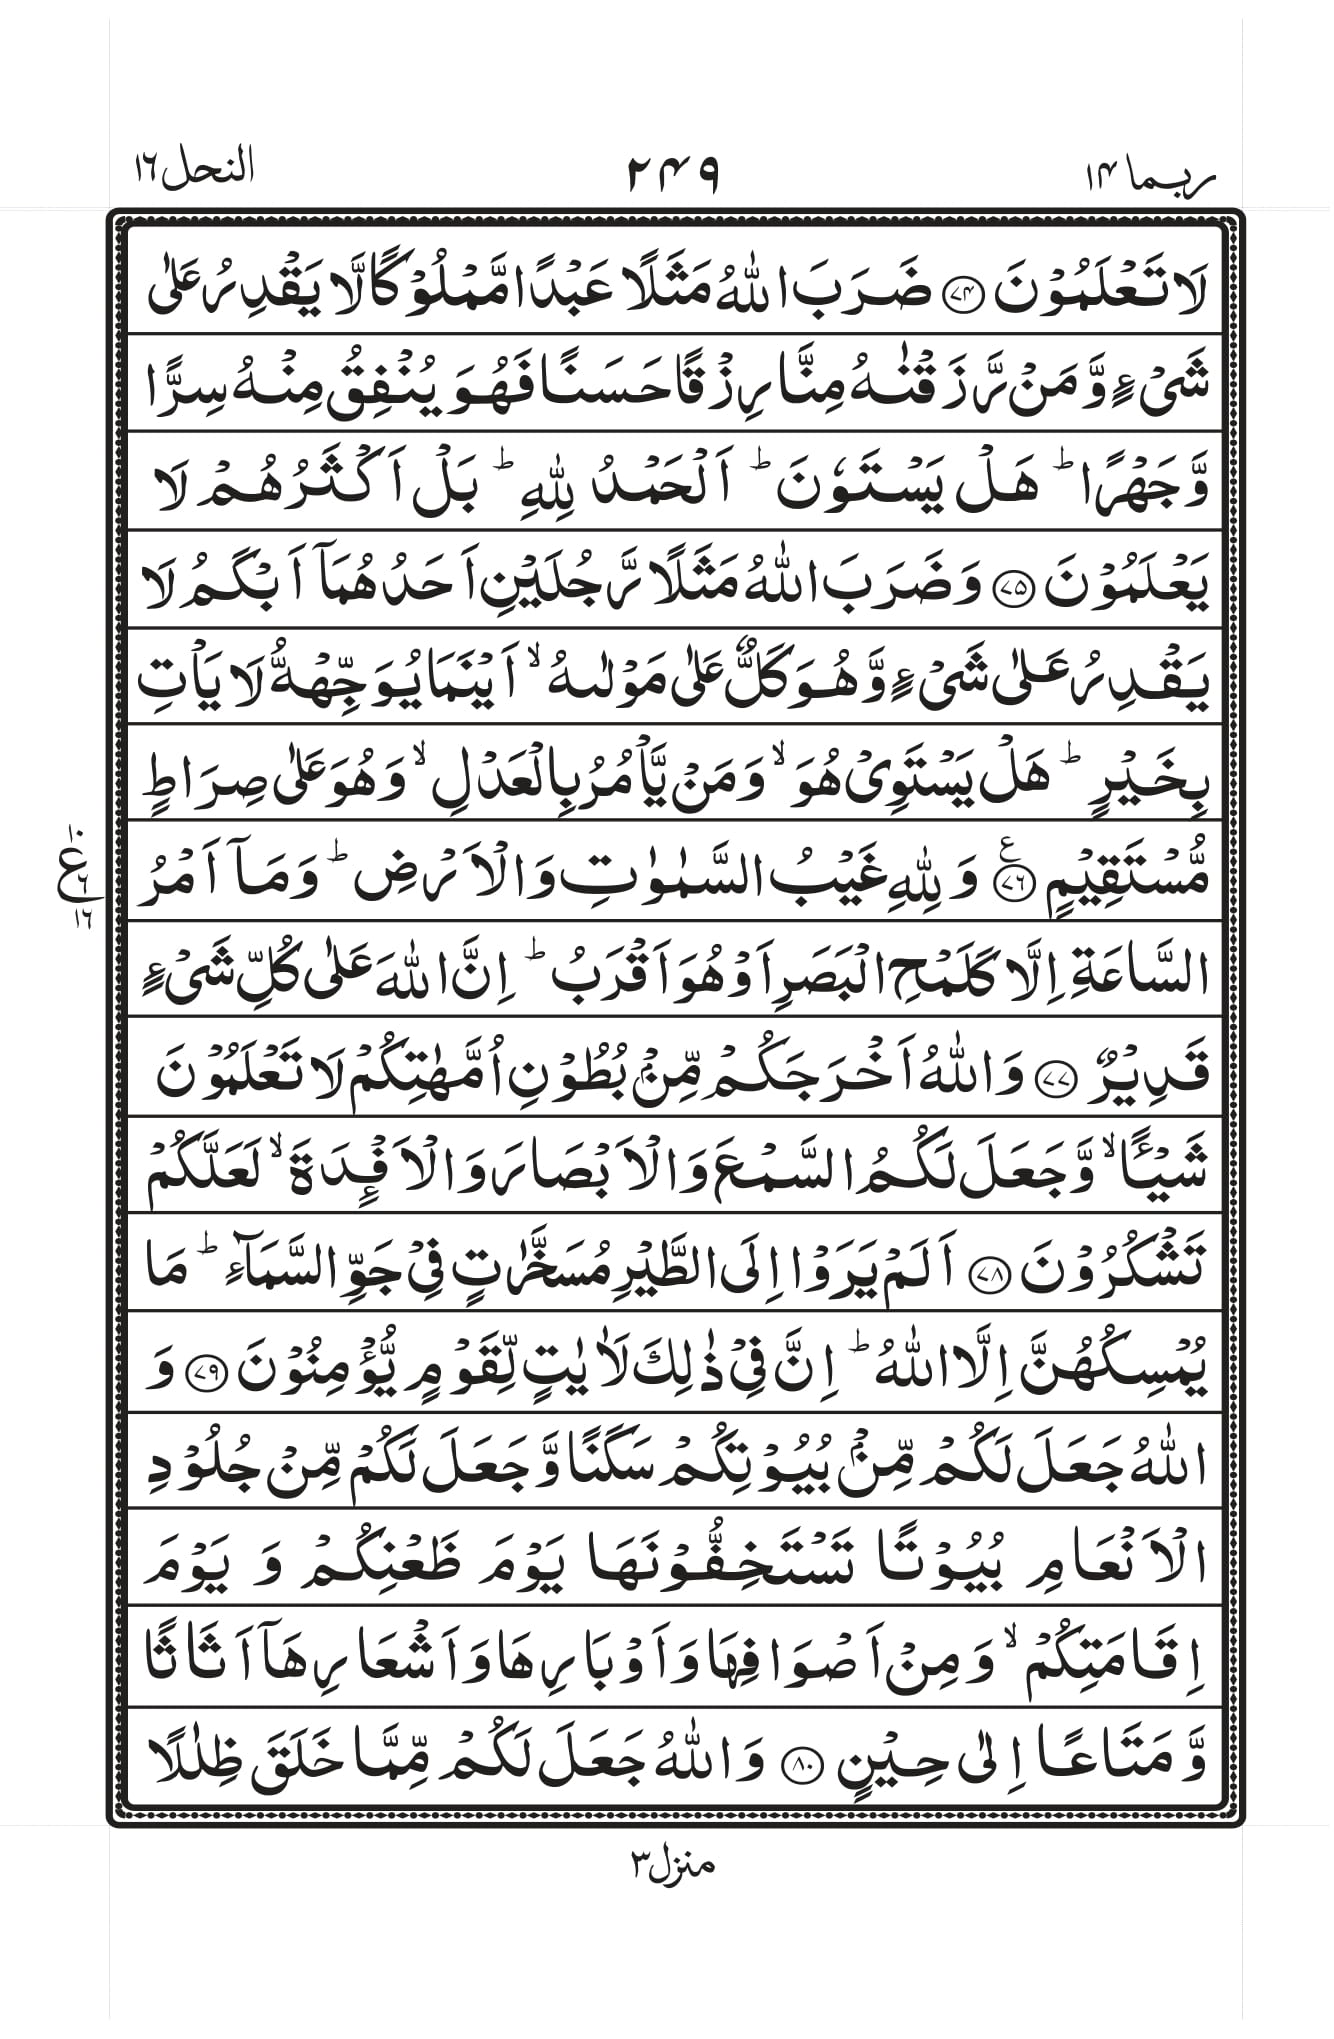 ربما ۱۴
۲۴۹
النحل ۱٦
لَا تَعۡلَمُوۡنَ ﴿۷۴﴾ ضَرَبَ اللّٰهُ مَثَلًا عَبۡدًا مَّمۡلُوۡكًا لَّا يَقۡدِرُ عَلٰى
شَىۡءٍ وَّمَنۡ رَّزَقۡنٰهُ مِنَّا رِزۡقًا حَسَنًا فَهُوَ يُنۡفِقُ مِنۡهُ سِرًّا
وَّجَهۡرًا ؕ هَلۡ يَسۡتَوٗنَ ؕ اَلۡحَمۡدُ لِلّٰهِ ؕ بَلۡ اَكۡثَرُهُمۡ لَا
يَعۡلَمُوۡنَ ﴿۷۵﴾ وَضَرَبَ اللّٰهُ مَثَلًا رَّجُلَيۡنِ اَحَدُهُمَاۤ اَبۡكَمُ لَا
يَقۡدِرُ عَلٰى شَىۡءٍ وَّهُوَ كَلٌّ عَلٰى مَوۡلٰٮهُ ۙ اَيۡنَمَا يُوَجِّههُّ لَا يَاۡتِ
بِخَيۡرٍ ؕ هَلۡ يَسۡتَوِىۡ هُوَ ۙ وَمَنۡ يَّاۡمُرُ بِالۡعَدۡلِ ۙ وَهُوَ عَلٰى صِرَاطٍ
مُّسۡتَقِيۡمٍ ﴿۷٦﴾ ع وَلِلّٰهِ غَيۡبُ السَّمٰوٰتِ وَالۡاَرۡضِ ؕ وَمَاۤ اَمۡرُ
۱۰ ع ٦ ۱٦
السَّاعَةِ اِلَّا كَلَمۡحِ الۡبَصَرِ اَوۡ هُوَ اَقۡرَبُ ؕ اِنَّ اللّٰهَ عَلٰى كُلِّ شَىۡءٍ
قَدِيۡرٌ ﴿۷۷﴾ وَاللّٰهُ اَخۡرَجَكُمۡ مِّنۡۢ بُطُوۡنِ اُمَّهٰتِكُمۡ لَا تَعۡلَمُوۡنَ
شَيۡـًٔـا ۙ وَّجَعَلَ لَكُمُ السَّمۡعَ وَالۡاَبۡصَارَ وَالۡاَفۡـِٕدَةَ ۙ لَعَلَّكُمۡ
تَشۡكُرُوۡنَ ﴿۷۸﴾ اَلَمۡ يَرَوۡا اِلَى الطَّيۡرِ مُسَخَّرٰتٍ فِىۡ جَوِّ السَّمَآءِ ؕ مَا
يُمۡسِكُهُنَّ اِلَّا اللّٰهُ ؕ اِنَّ فِىۡ ذٰلِكَ لَاٰيٰتٍ لِّقَوۡمٍ يُّؤۡمِنُوۡنَ ﴿۷۹﴾ وَ
اللّٰهُ جَعَلَ لَكُمۡ مِّنۡۢ بُيُوۡتِكُمۡ سَكَنًا وَّجَعَلَ لَكُمۡ مِّنۡ جُلُوۡدِ
الۡاَنۡعَامِ بُيُوۡتًا تَسۡتَخِفُّوۡنَهَا يَوۡمَ ظَعۡنِكُمۡ وَ يَوۡمَ
اِقَامَتِكُمۡ ۙ وَمِنۡ اَصۡوَافِهَا وَاَوۡبَارِهَا وَاَشۡعَارِهَاۤ اَثَاثًا
وَّمَتَاعًا اِلٰى حِيۡنٍ ﴿۸۰﴾ وَاللّٰهُ جَعَلَ لَكُمۡ مِّمَّا خَلَقَ ظِلٰلًا
منزل ۳